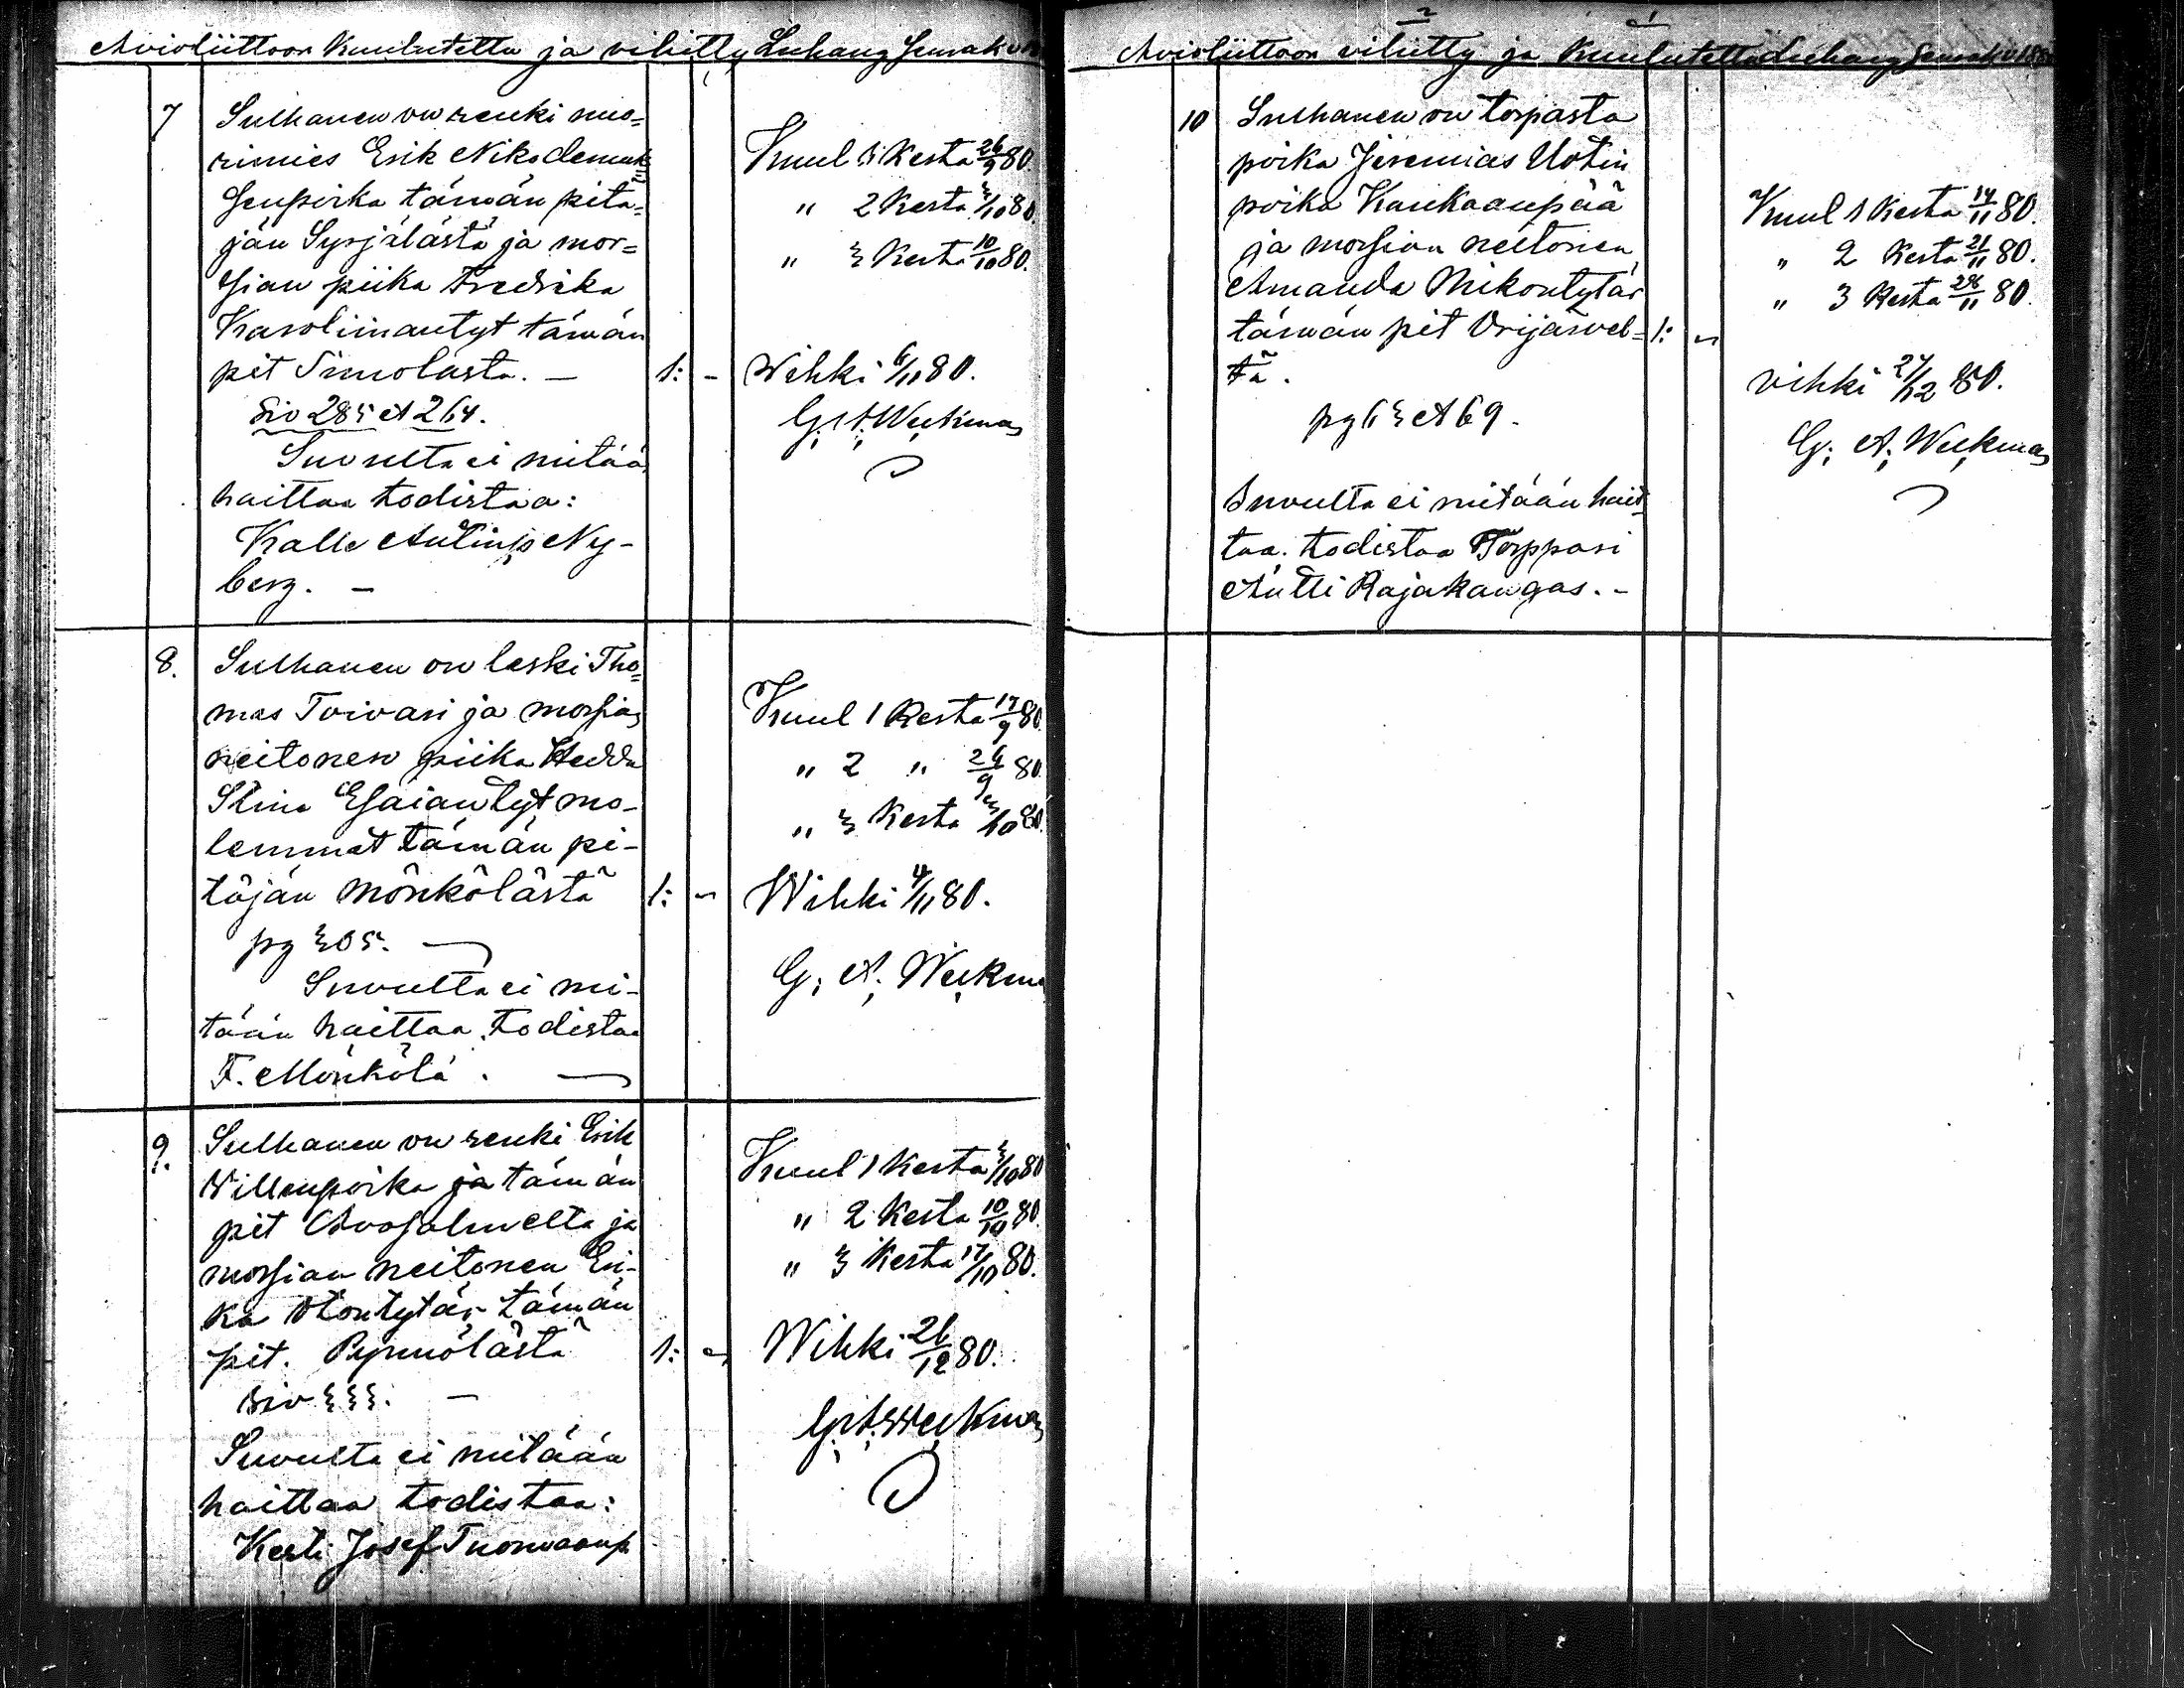 Avioliittoon Kuulutettu ja vihitty Luhang Seurak v
7
Sulhanen on renki nuo=
rimies Erik Nikodemuk=
senpoika tämän pitä=
jän Syrjälästä ja mor=
sian piika Fredrika
Karoliinantyt tämän
pit Simolasta. —
Siv 285 et 264.
Suvulta ei mitään
haittaa todistaa:
Kalle Antinp Ny-
berg. —
1: -
Kuul 1 Kesta 26/9 80.
" 2 Kesta 3/10 80.
" 3 Kesta 10/10 80.
Wihki 6/11 80.
G. A. Weckman
8.
Sulhanen on leski Tho=
mas Toivari ja morsian
neitonen piika Hedda
Stina Esaiantyt mo-
lemmat tämän pi-
täjän Mönkölästä
pg 305. —
Suvulta ei mi-
tään haittaa todistaa
F. Mönkölä. —
1: -
Kuul 1 Kesta 17/9 80
" 2 " 26/9 80
" 3 Kesta 3/10 80.
Wihki 4/11 80.
G. A. Weckm
9.
Sulhanen on renki Erik
Willenpoika ja tämän
pit Avosalmelta ja
morsian neitonen Eri-
ka Otontytär tämän
pit.
siv 333. —
Suvulta ei mitään
haittaa todistaa:
Kesti Josef Tuomaanp
1: -
Kuul 1 Kesta 3/10 80
" 2 Kesta 10/10 80.
" 3 Kesta 17/10 80.
Wihki 26/12 80.
G. A. Weckman
Avioliittoon vihitty ja Kuulutettu Luhang Seurak v 188
10
Sulhanen on torpasta
poika Jeremias Uotin
poika Kaukaanpää
ja morsian neitonen
Amanda Mikontytär
tämän pit
tä.
pg 63 et 69.
Suvulta ei mitään hait
taa. todistaa Torppari
Antti Rajakangas. -
1: -
Kuul 1 Kesta 14/11 80.
" 2 Kesta 21/11 80.
" 3 Kesta 28/11 80.
vihki 27/12 80.
G. A. Weckman